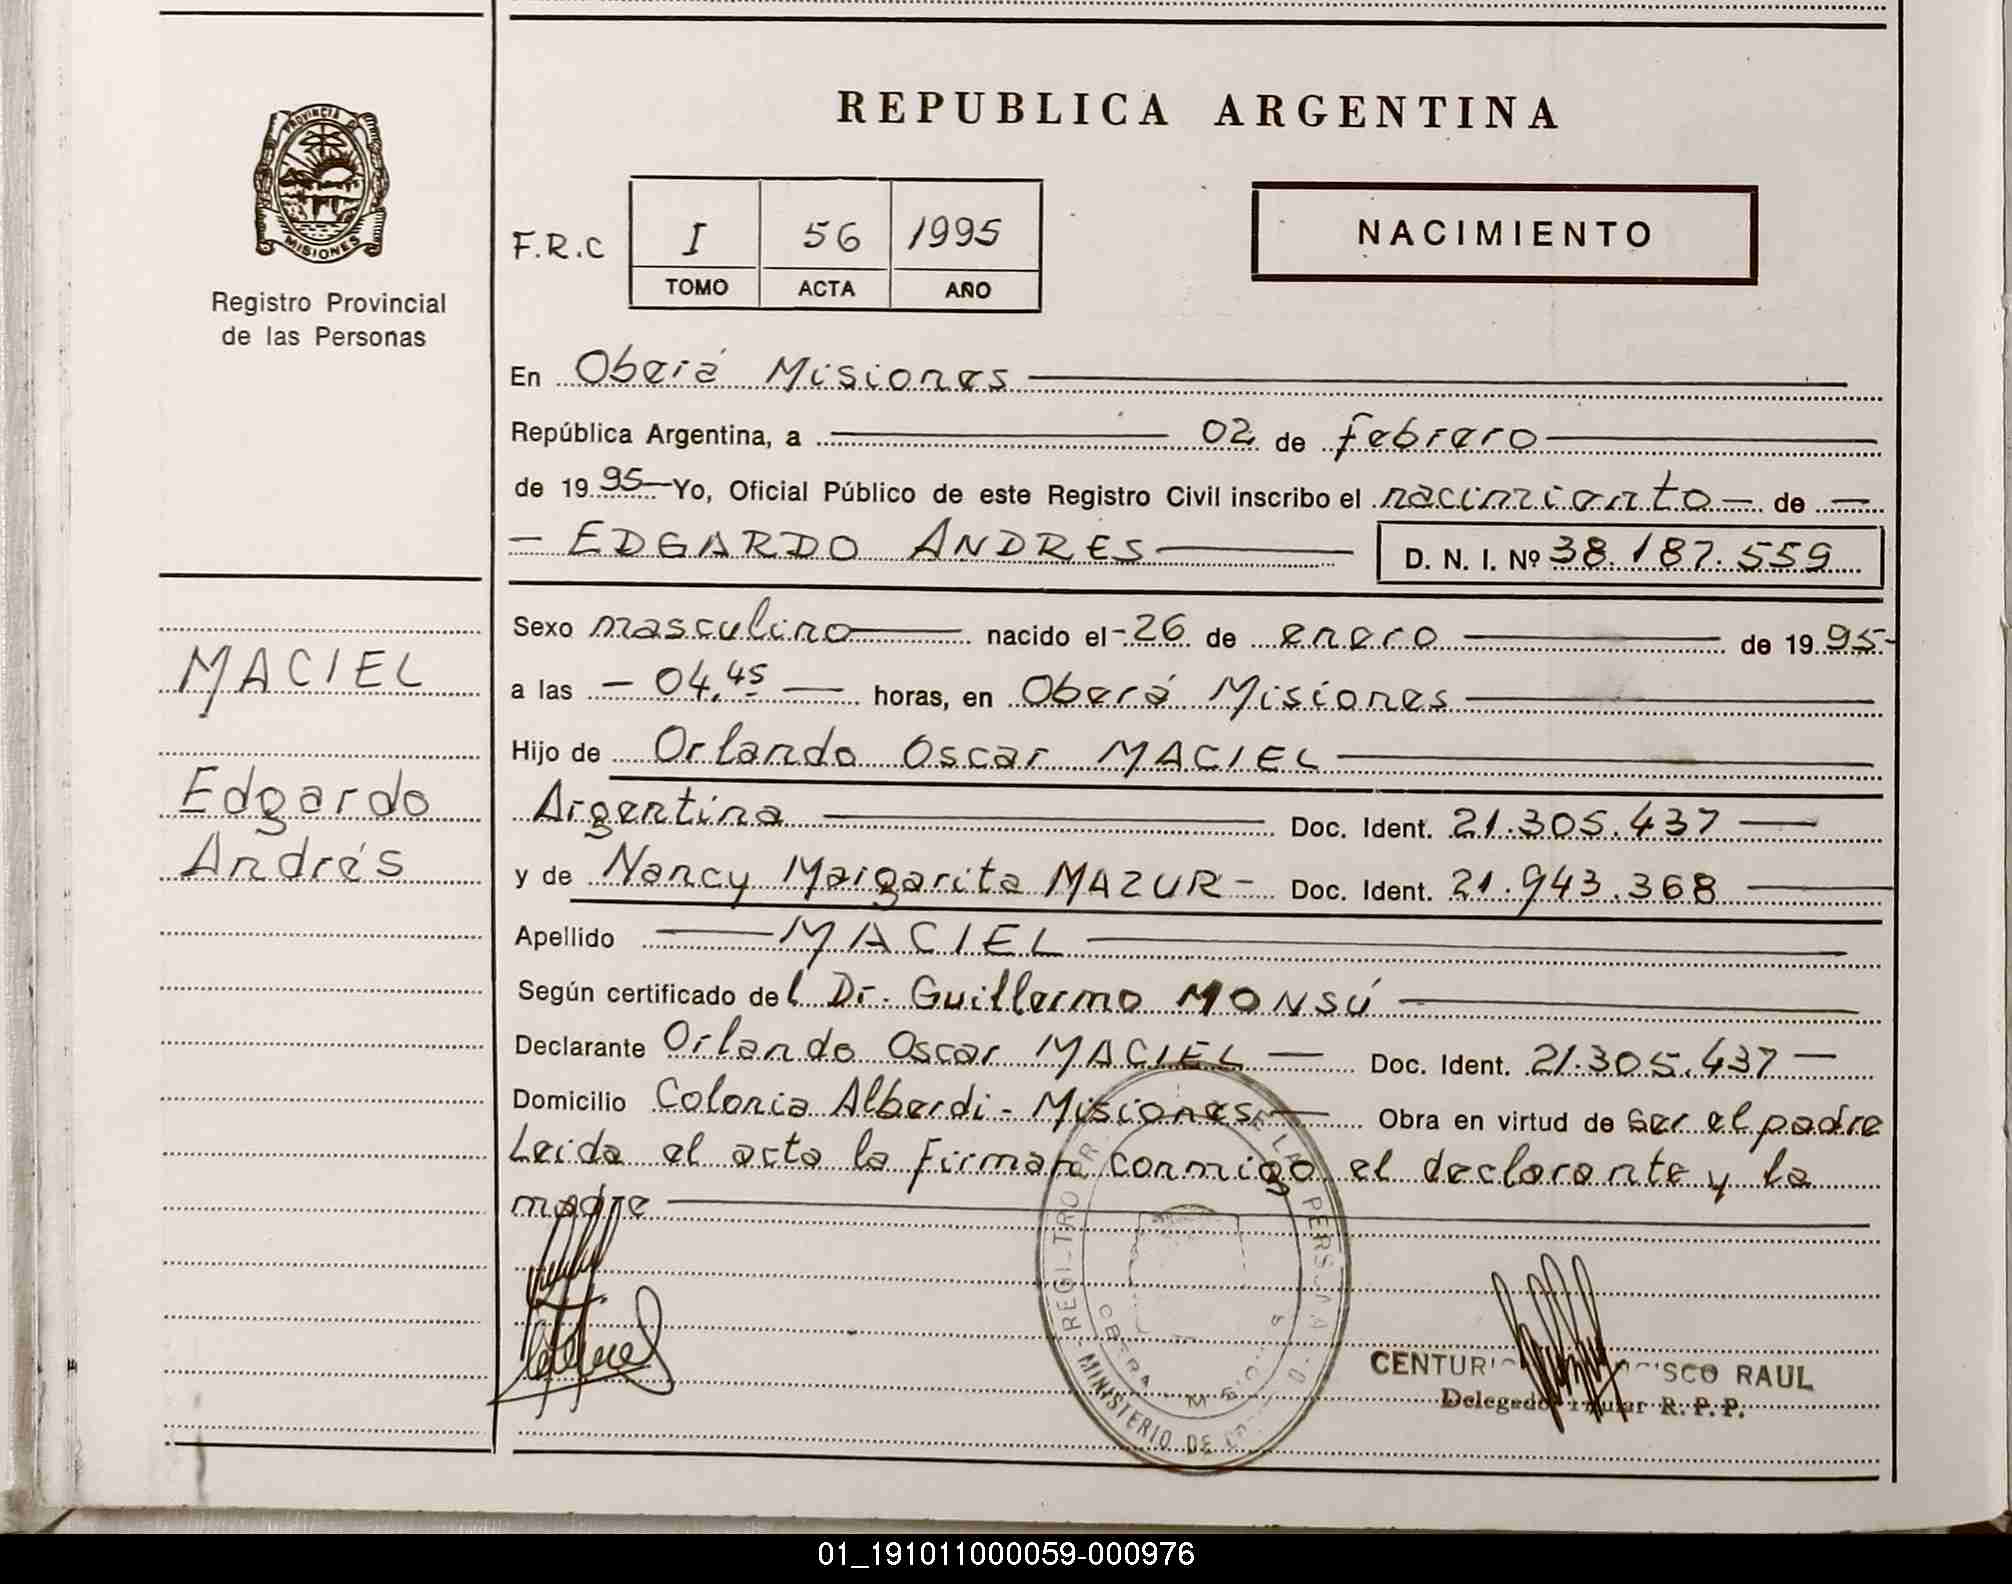 PROVINCIA DE
MISIONES
Registro Provincial
de las Personas
MACIEL
Edgardo
Andrés
REPUBLICA ARGENTINA
F.R.C I 56 1995
TOMO ACTA AÑO
NACIMIENTO
En Oberá Misiones
República Argentina, a 02 de febrero
de 1995 Yo, Oficial Público de este Registro Civil inscribo el nacimiento de
EDGARDO ANDRES D. N. I. Nº 38.187.559
Sexo masculino nacido el 26 de enero de 1995
a las 04.45 horas, en Oberá Misiones
Hijo de Orlando Oscar MACIEL
Argentina Doc. Ident. 21.305.437
y de Nancy Margarita MAZUR Doc. Ident. 21.943.368
Apellido MACIEL
Según certificado del Dr. Guillermo MONSÚ
Declarante Orlando Oscar MACIEL Doc. Ident. 21.305.437
Domicilio Colonia Alberdi - Misiones Obra en virtud de ser el padre
Leida el acta la firman conmigo el declarante y la
madre
MINISTERIO DE
RAUL
Delegado Titular R. P. P.
01_191011000059-000976